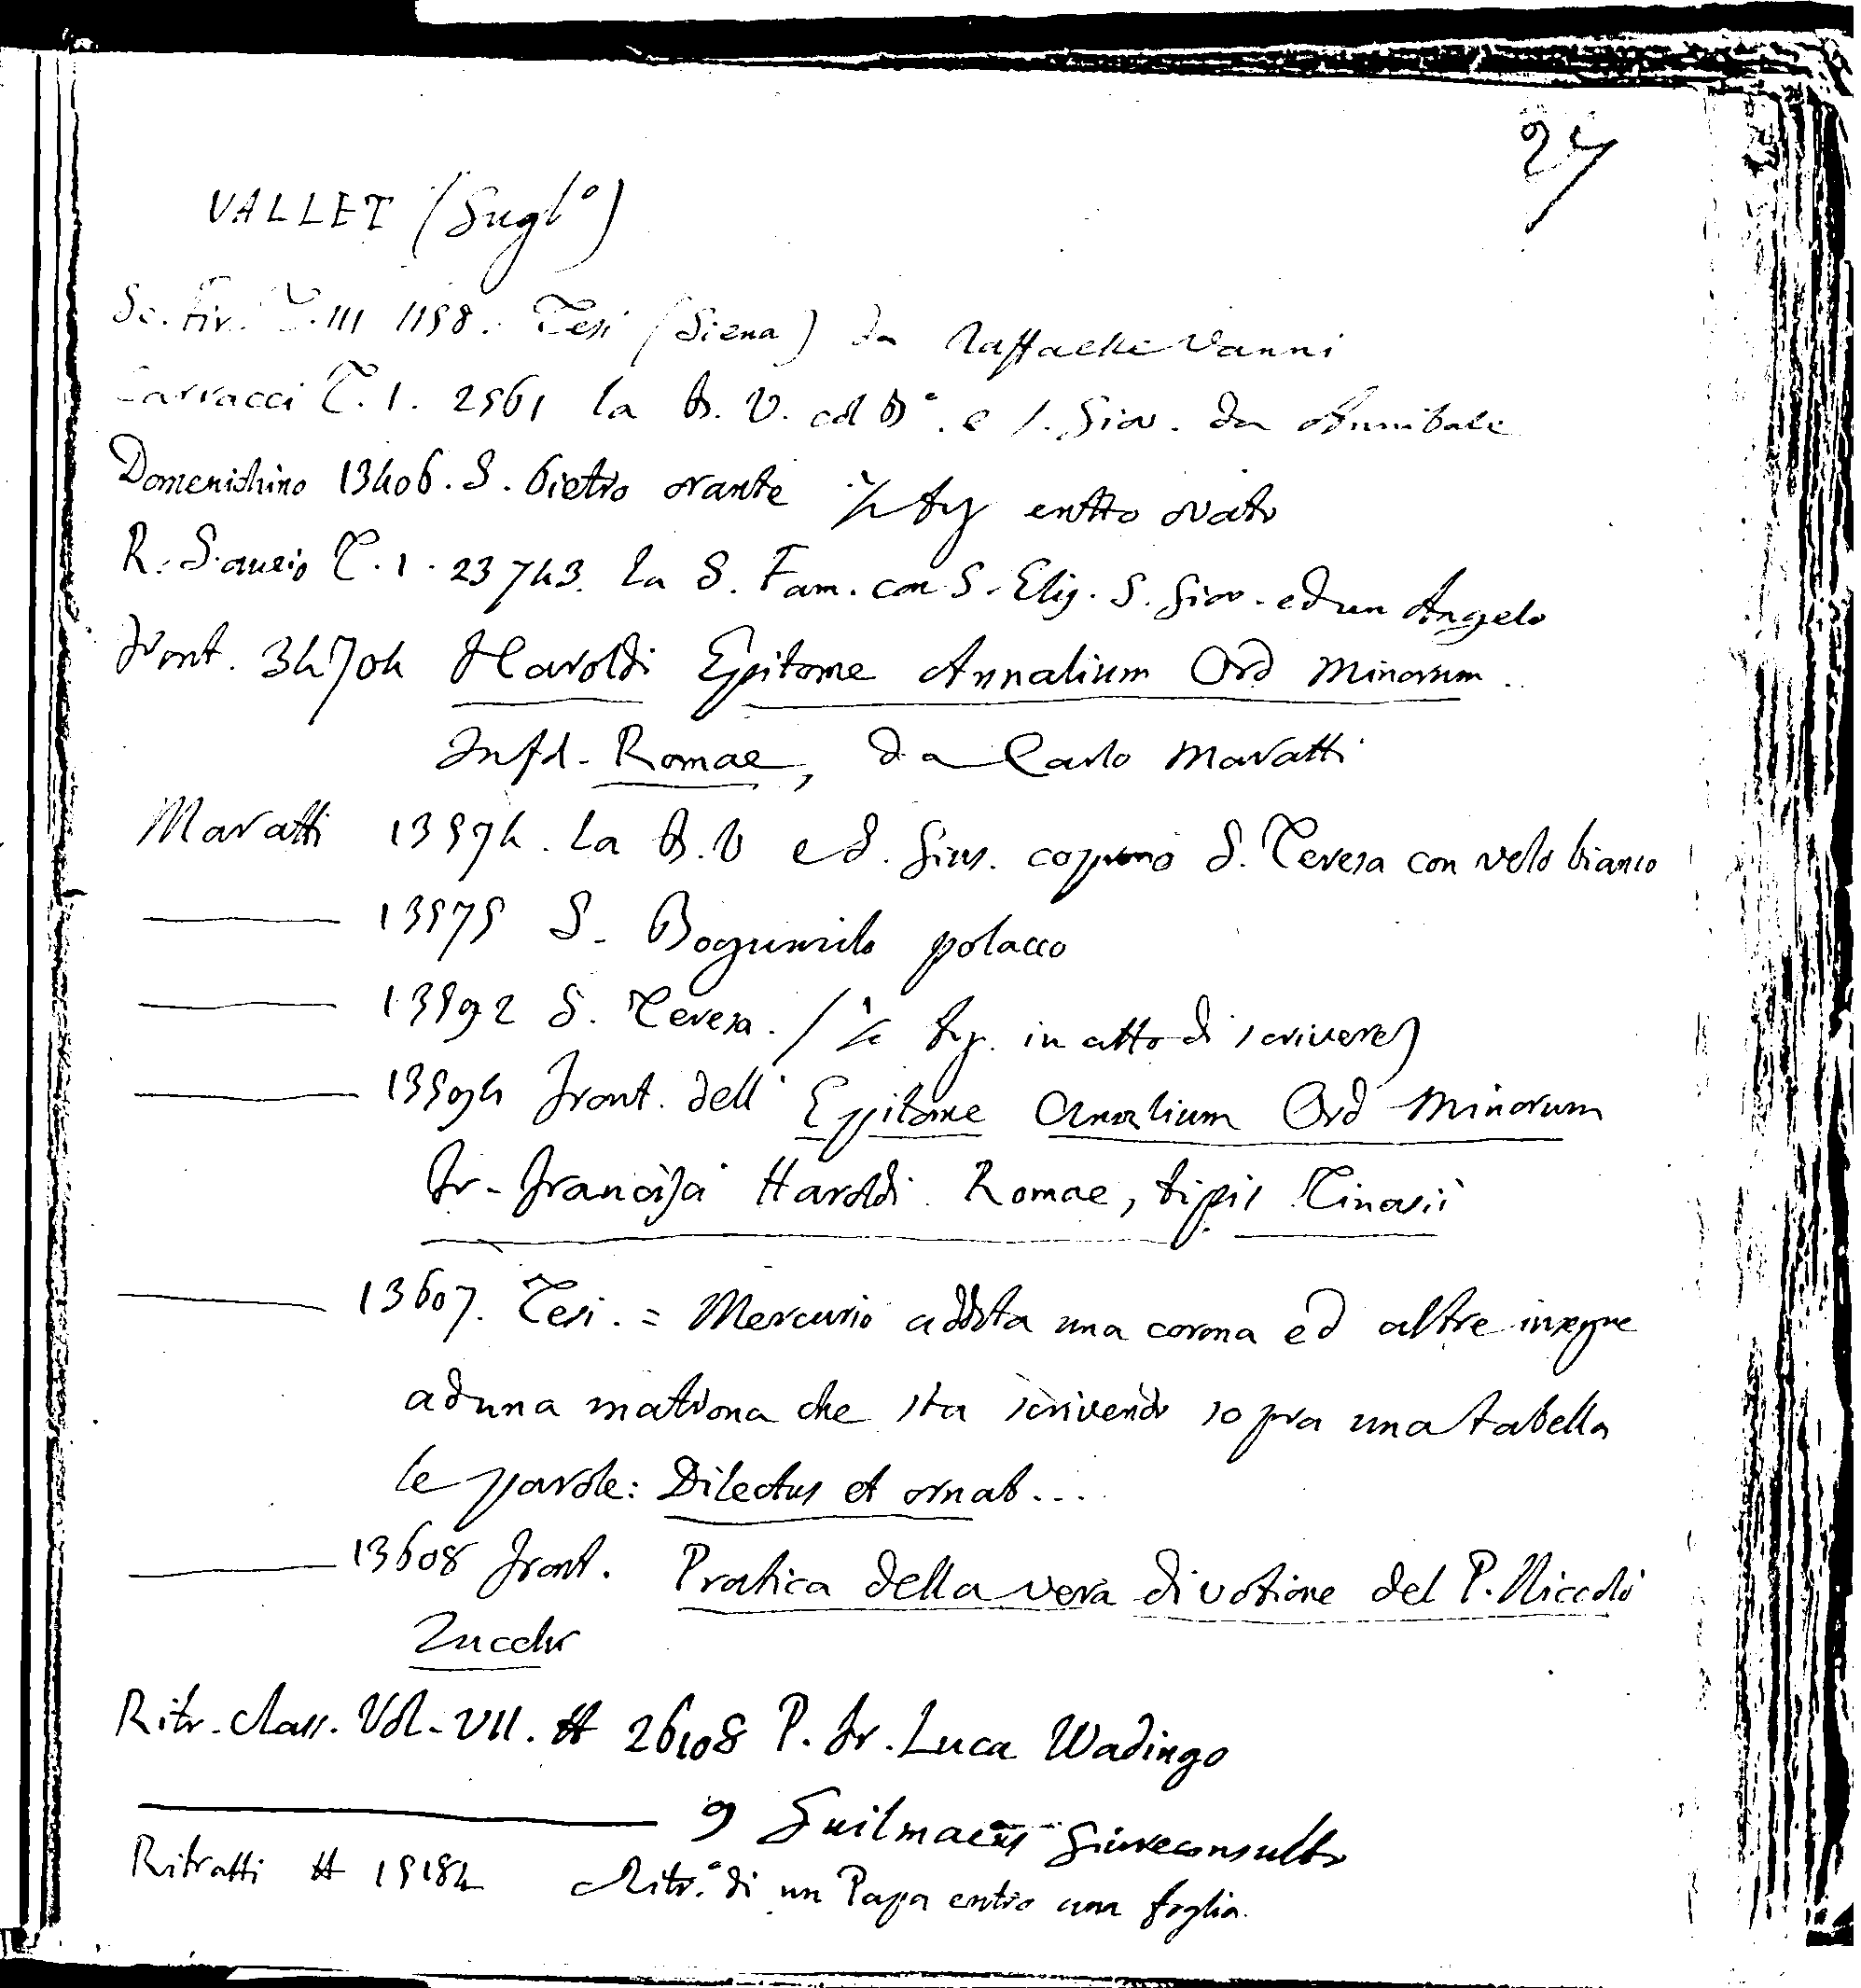 24
VALLET (Gugl°)
Sc. Fir. T. III 1198. Tesi (Siena) da Raffaelle Vanni
Carracci T. 1. 2561 la B. V. col B°. e S. Giov. da Annibale
Domenichino 13406. S. Pietro orante ½ fig entro ovato
R. Sanzio T. 1. 23743. la S. Fam. con S. Elis. S. Giov. ed un Angelo
Front. 34704 Haroldi Epitome Annalium Ord Minorum
Romae, da Carlo Maratti
Maratti 13574. la B. V e S. Gius. coprono S. Teresa con velo bianco
13575 S. Bogumilo polacco
13592 S. Teresa. (½ fig. in atto di scrivere)
13594 front. dell' Epitome Analium Ord Minorum
Fr. Francisci Haroldi Romae, tipis Tinasii
13607. Tesi. = Mercurio addita una corona ed altre insegne
ad una matrona che sta scrivendo sopra una tabella
le parole: Dilectus et ornat...
13608 front. Pratica della vera divotione del P. Niccolò
Zucchi
Ritr. class. Vol. VII. # 26108 P. Fr. Luca Wadingo
9 Guilmaeus Giureconsulto
Ritratti # 15184 Ritr.° di un Papa entro una foglia.